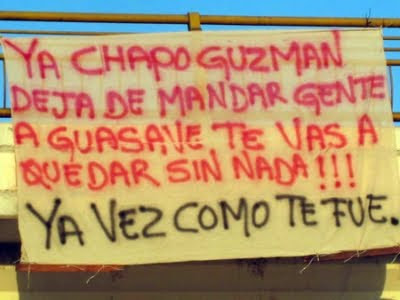 YA CHAPO GUZMAN
DEJA DE MANDAR GENTE
A GUASAVE TE VAS A
QUEDAR SIN NADA!!!
YA VEZ COMO TE FUE.